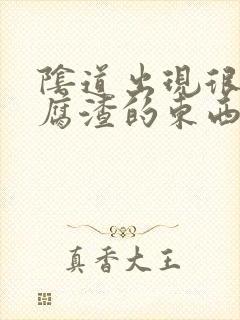 陰道出現很
腐渣的東西
真香大王